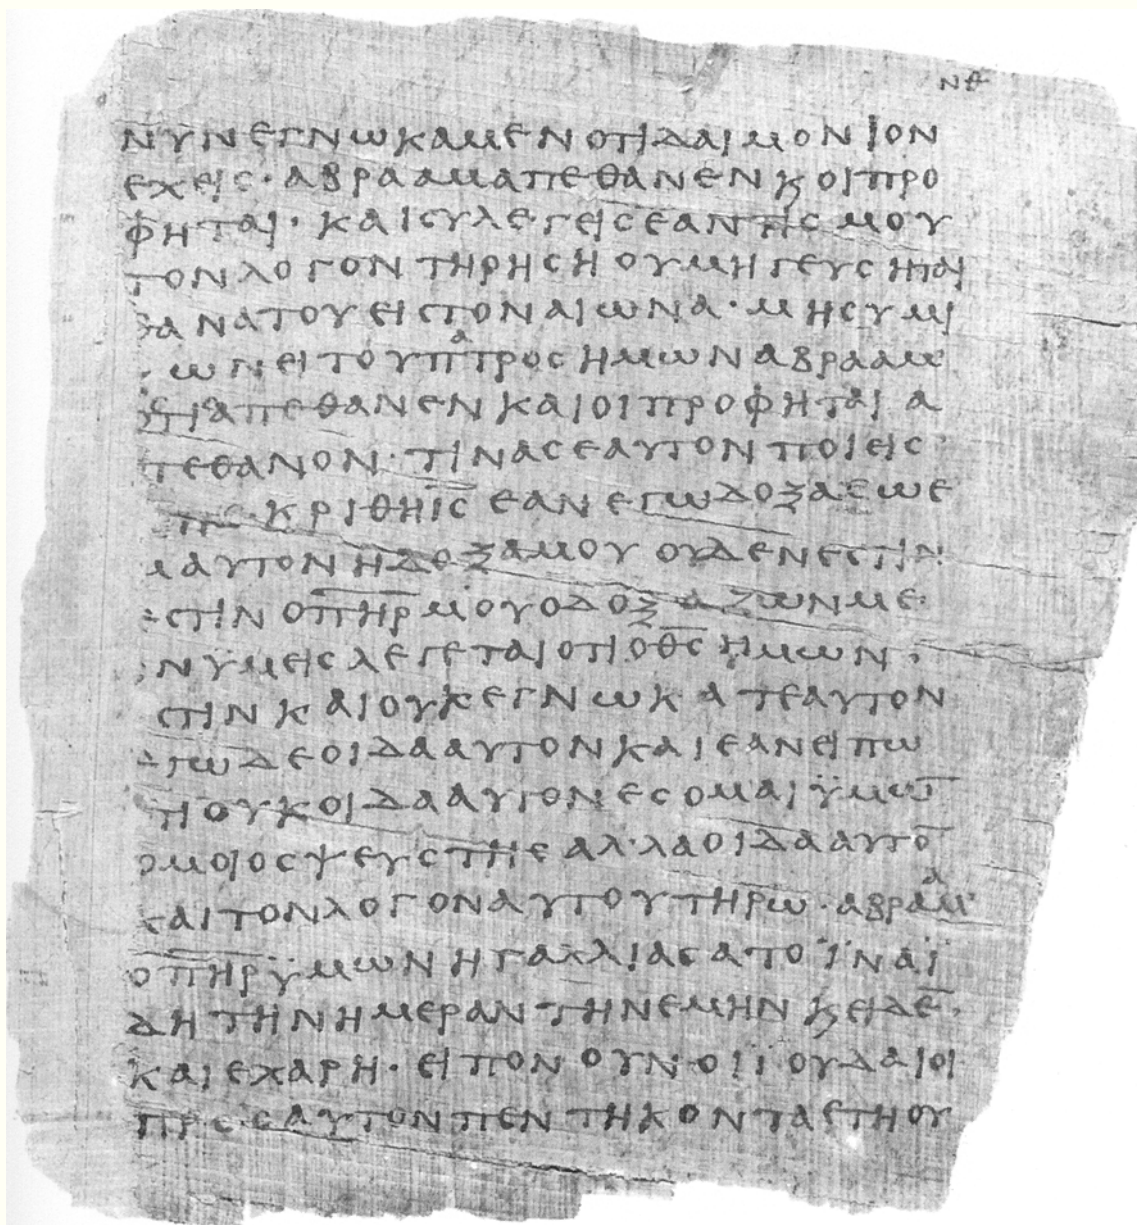 νθ
ΝΥΝΕΓΝΩΚΑΜΕΝΟΤΙΔΑΙΜΟΝΙΟΝ
ΕΧΕΙΣ· ΑΒΡΑΑΜΑΠΕΘΑΝΕΝϗΟΙΠΡΟ
ΦΗΤΑΙ· ΚΑΙΣΥΛΕΓΕΙΣΕΑΝΤΙΣΜΟΥ
ΤΟΝΛΟΓΟΝΤΗΡΗΣΗΟΥΜΗΓΕΥΣΗΤΑΙ
ΘΑΝΑΤΟΥΕΙΣΤΟΝΑΙΩΝΑ· ΜΗΣΥΜΙ
ΩΝΕΙΤΟΥΠΑΤΡΟΣΗΜΩΝΑΒΡΑΑΜ
ΟΤΙΑΠΕΘΑΝΕΝΚΑΙΟΙΠΡΟΦΗΤΑΙΑ
ΠΕΘΑΝΟΝ· ΤΙΝΑΣΕΑΥΤΟΝΠΟΙΕΙΣ
ΚΡΙΘΗΙ̅Σ̅ΕΑΝΕΓΩΔΟΞΑΣΩΕ
ΜΑΥΤΟΝΗΔΟΞΑΜΟΥΟΥΔΕΝΕΣΤΙΝ
ΕΣΤΙΝΟΠ̅Η̅Ρ̅ΜΟΥΟΔΟΞΑΖΩΝΜΕ
ΝΫΜΕΙΣΛΕΓΕΤΑΙΟΤΙΟΘ̅Σ̅ΗΜΩΝ
ΣΤΙΝΚΑΙΟΥΚΕΓΝΩΚΑΤΕΑΥΤΟΝ
ΕΓΩΔΕΟΙΔΑΑΥΤΟΝΚΑΙΕΑΝΕΙΠΩ
ΤΙΟΥΚΟΙΔΑΑΥΤΟΝΕΣΟΜΑΙΫΜΩ̅
ΟΜΟΙΟΣΨΕΥΣΤΗΣΑΛΛΑΟΙΔΑΑΥΤΟ̅
ΚΑΙΤΟΝΛΟΓΟΝΑΥΤΟΥΤΗΡΩ· ΑΒΡΑΑΜ
ΟΠ̅Η̅Ρ̅ΫΜΩΝΗΓΑΛΛΙΑΣΑΤΟΪΝΑΪ
ΔΗΤΗΝΗΜΕΡΑΝΤΗΝΕΜΗΝϗΕΙΔΕ̅
ΚΑΙΕΧΑΡΗ· ΕΙΠΟΝΟΥΝΟΙΪΟΥΔΑΙΟΙ
ΠΡΟΣΑΥΤΟΝΠΕΝΤΗΚΟΝΤΑΕΤΗΟΥ